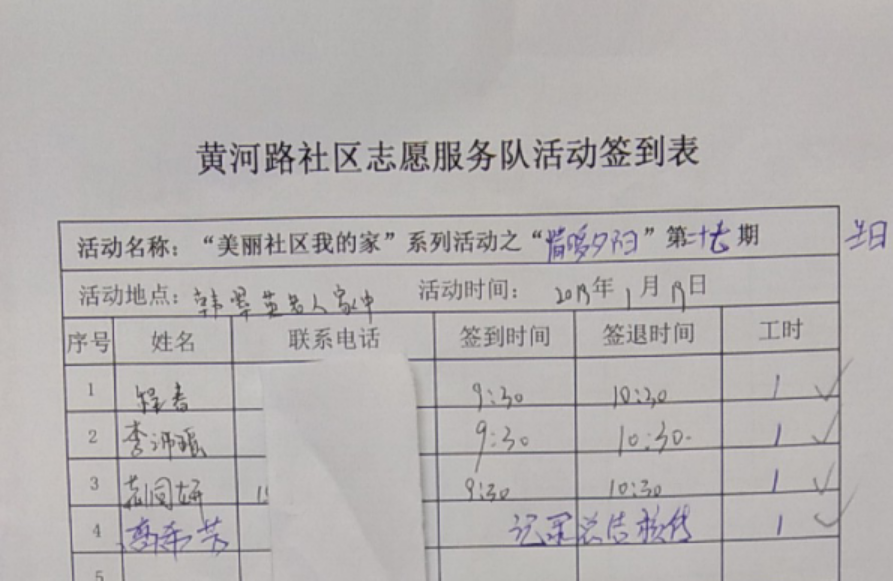 黄河路社区志愿服务队活动签到表
活动名称：“美丽社区我的家”系列活动之“情暖夕阳”第二十七期
活动地点：韩翠英老人家中 活动时间：2019年1月19日
序号 姓名 联系电话 签到时间 签退时间 工时
1 9:30 10:30 1 ✓
2 李 9:30 10:30 1 ✓
3 9:30 10:30 1 ✓
4 高希芳 记录总结 1 ✓
5